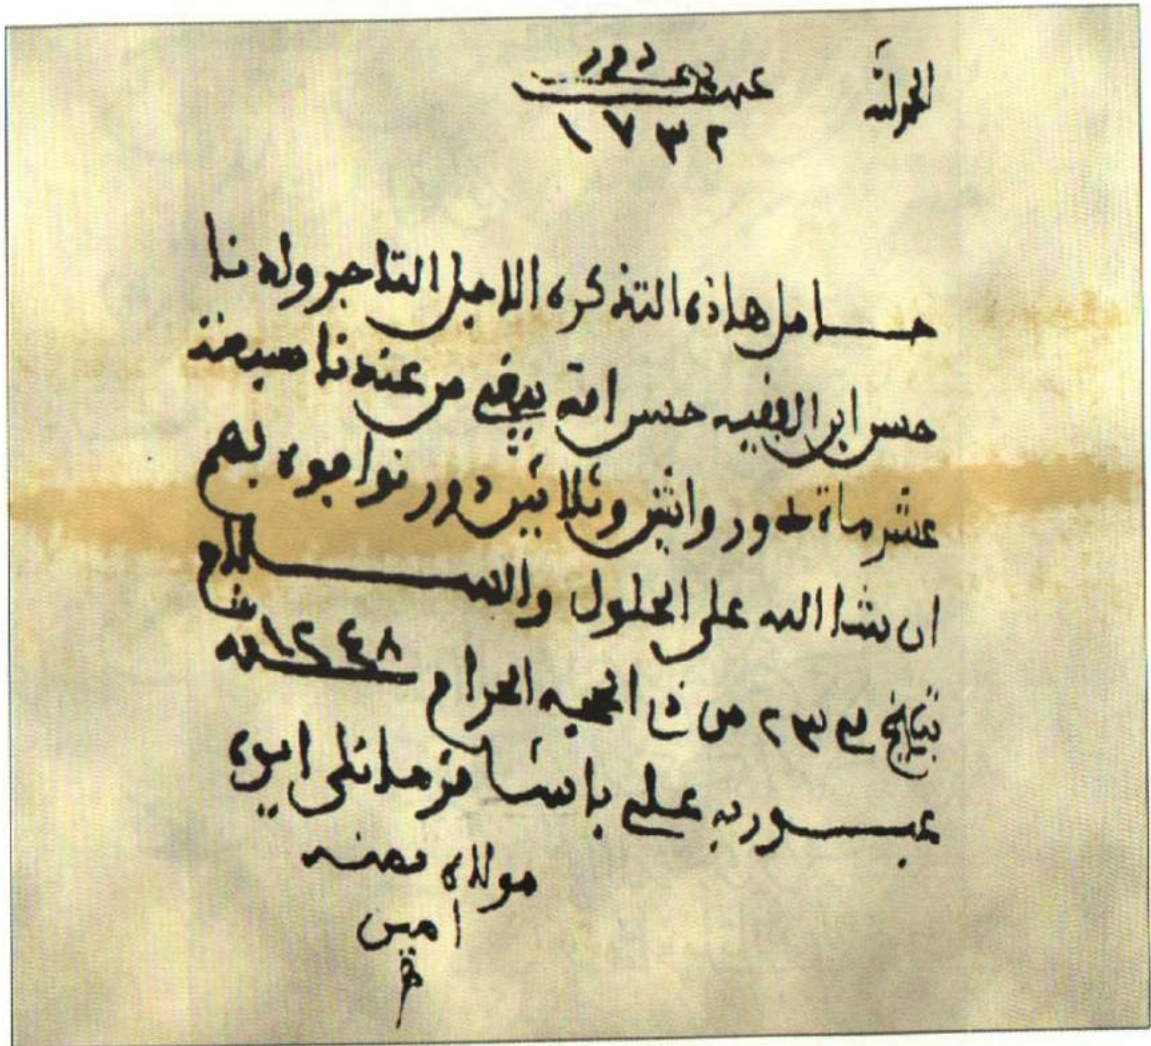 الحمد لله
دور
١٧٣٢
حامل هاذه التذكره الاجل التاجر ولدنا
حسن ابن الفقيه حسن انه يبقى من عندنا سبعة
عشر ماة دور واثنين وثلاثين دور نواجبوه بهم
ان شا الله على الحلول والسلام
بتاريخ يوم ٢٣ من ذا الحجه الحرام ١٢٤٨ سنه
عبد ربه علي باشا قرمانلي ايده
مولاه بمنه
امين